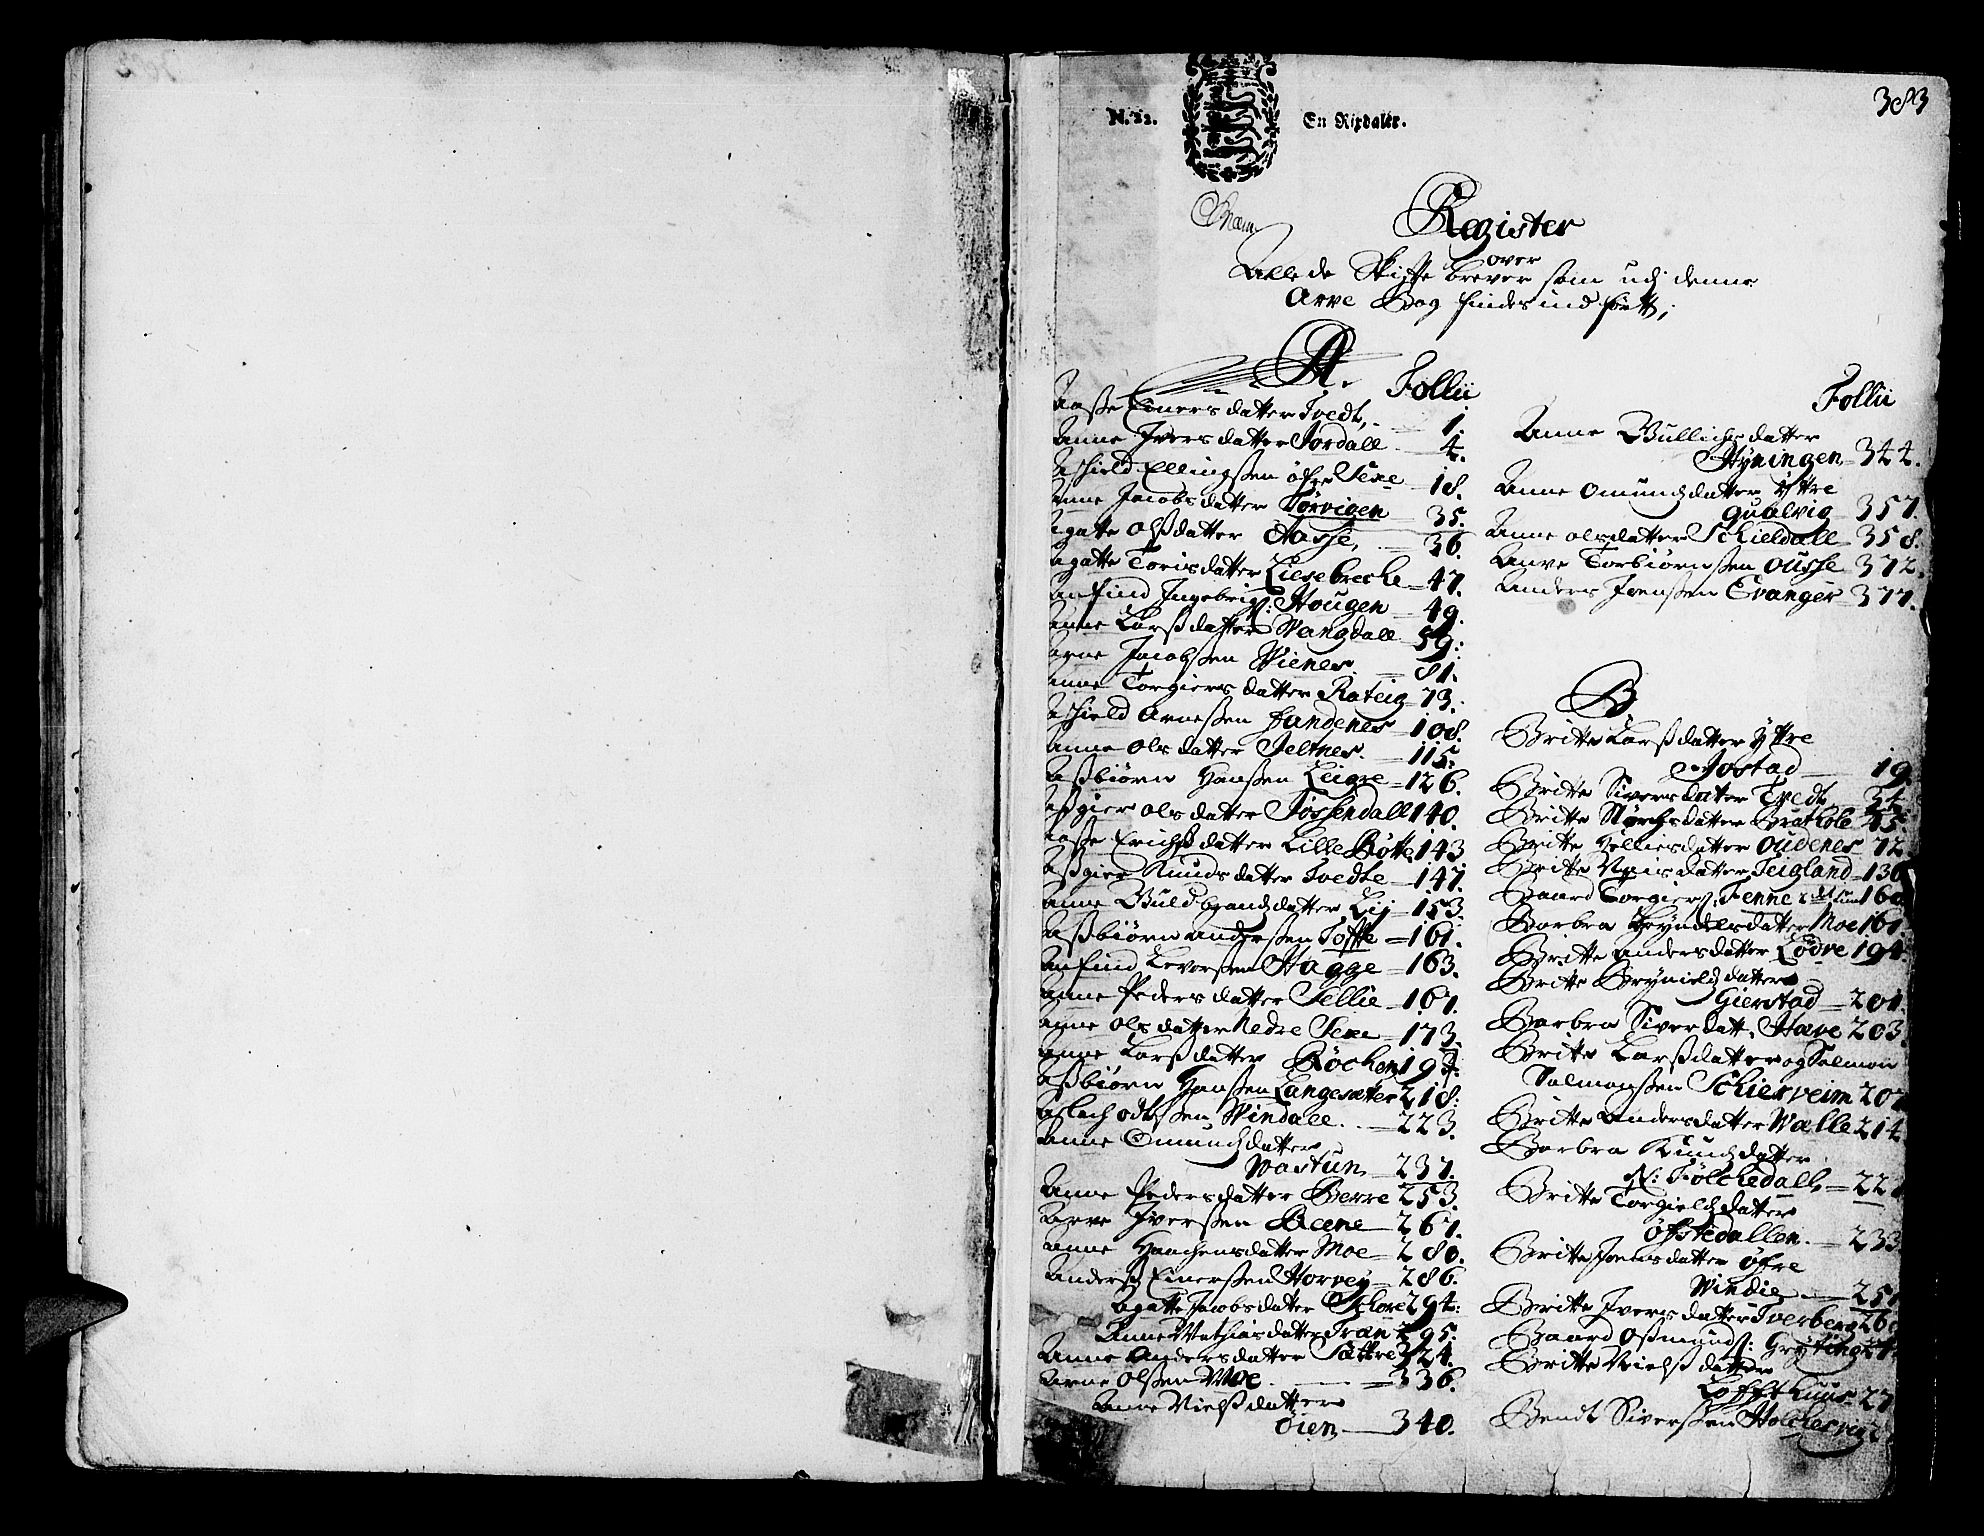 383
N. 22. En Rixdaler.
Register
over
Alle de Skifte brever som udj denne
Arve Bog findes indførtt;
A. Follii
Aasse Einersdatter Tvedt, 1
Anne Iversdatter Jordall 4.
Aschield Ellingssen øfre Sexe 18.
Anne Jacobsdatter Tørvigen 35.
Agatte Olssdatter Aasse, 36.
Agatte Torisdatter Liesebreche 47.
Anfind Ingebrigs: Hougen 49.
Anne Larssdatter Wangdall 59:
Arne Jacobssen Wienes. 81.
Anne Torgiersdatter Rateig 73.
Aschield Arnessen Sandenes 108.
Anne Olsdatter Jeltnes. 115.
Assbiørn Hanssen Leigre 126.
Assgier Olsdatter Tøssendall 140.
Aasse Erichsdatter Lille Bøtte 143
Assgier Knudsdatter Tvedte 147.
Anne Guldbrandsdatter Lij 153.
Assbiørn Anderssen Tøffte 161.
Anfind Levorssen Hagge 163.
Anne Pedersdatter Sellie 167.
Anne Olsdatter Nedre Sexe 173.
Anne Larssdatter Røchen 197.
Assbiørn Hanssen Langesæter 218.
Aslach Odtssen Windall. 223.
Anne Omundsdatter
Wastun 237.
Anne Pedersdatter Berre 253.
Arve Iverssen Bleene 267.
Anne Haachensdatter Moe 280.
Anderss Einerssen Horvey 286.
Agatte Jacobsdatter Schore 294:
Anne Mathiasdatter Træn 295.
Anne Andersdatter Sættre 324.
Arne Olssen Moe 336.
Anne Nielssdatter
Øien 340.
Follii
Anne
Hyningen 344.
Anne Omundsdatter Yttre
Qualvig 357.
Anne Olsdatter Schieldall 358.
Anve Torbiørnssen Ousse 372.
Anders Jonssen Evanger 377.
B
Britte Larssdatter Yttre
Jostad 19
Britte Siversdatter Tvedt 34
Britte Størchsdatter Brathole 45.
Britte Helliesdatter Oudenes 72
Britte Nielsdatter Teigland 130
Baard Torgiers: Fenne 160
Barbra Bryndelsdatter Moe 161.
Britte Andersdatter Lødve 194.
Britte Brynieldsdatter
Gierstad 201.
Barbra Siverdatt: Hæve 203.
Brite Larssdatter og Salmon
Salmonssen Schierveim 207
Britte Andersdatter Walle 214
Barbra Knudsdatter
N: Følchedall, 22
Britte Torgieldsdatter
Øfstedallen. 233
Britte Joensdatter Øfre
Windie 251
Britte Iversdatter Tverberg 26
Baard Ossmunds: Gryting 27
Britte Nielssdatter
Lofft huus 27
Bendt Siverssen Holchesvig 2